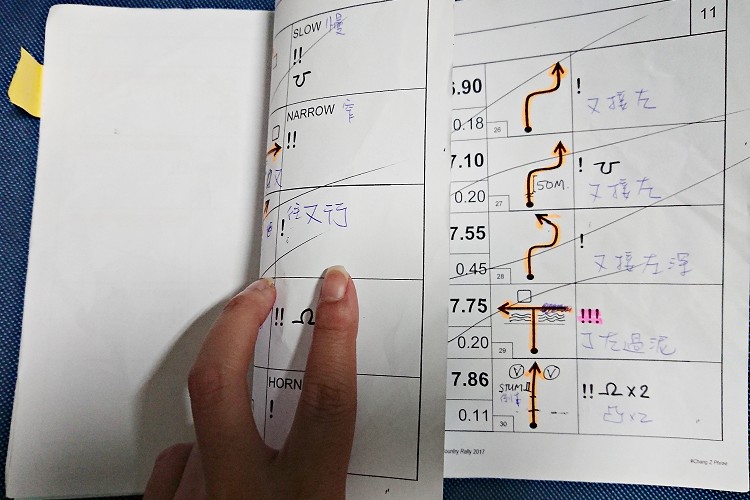 SLOW 慢
!!
NARROW 窄
!!
往又行
!
!!
HORN
!
11
6.90
!
又接左
0.18
26
7.10
!
50M.
又接左
0.20
27
7.55
!
又接左
0.45
28
7.75
!!!
丁左過泥
0.20
29
7.86
V V
!! Ω x2
凸x2
0.11
30
ountry Rally 2017